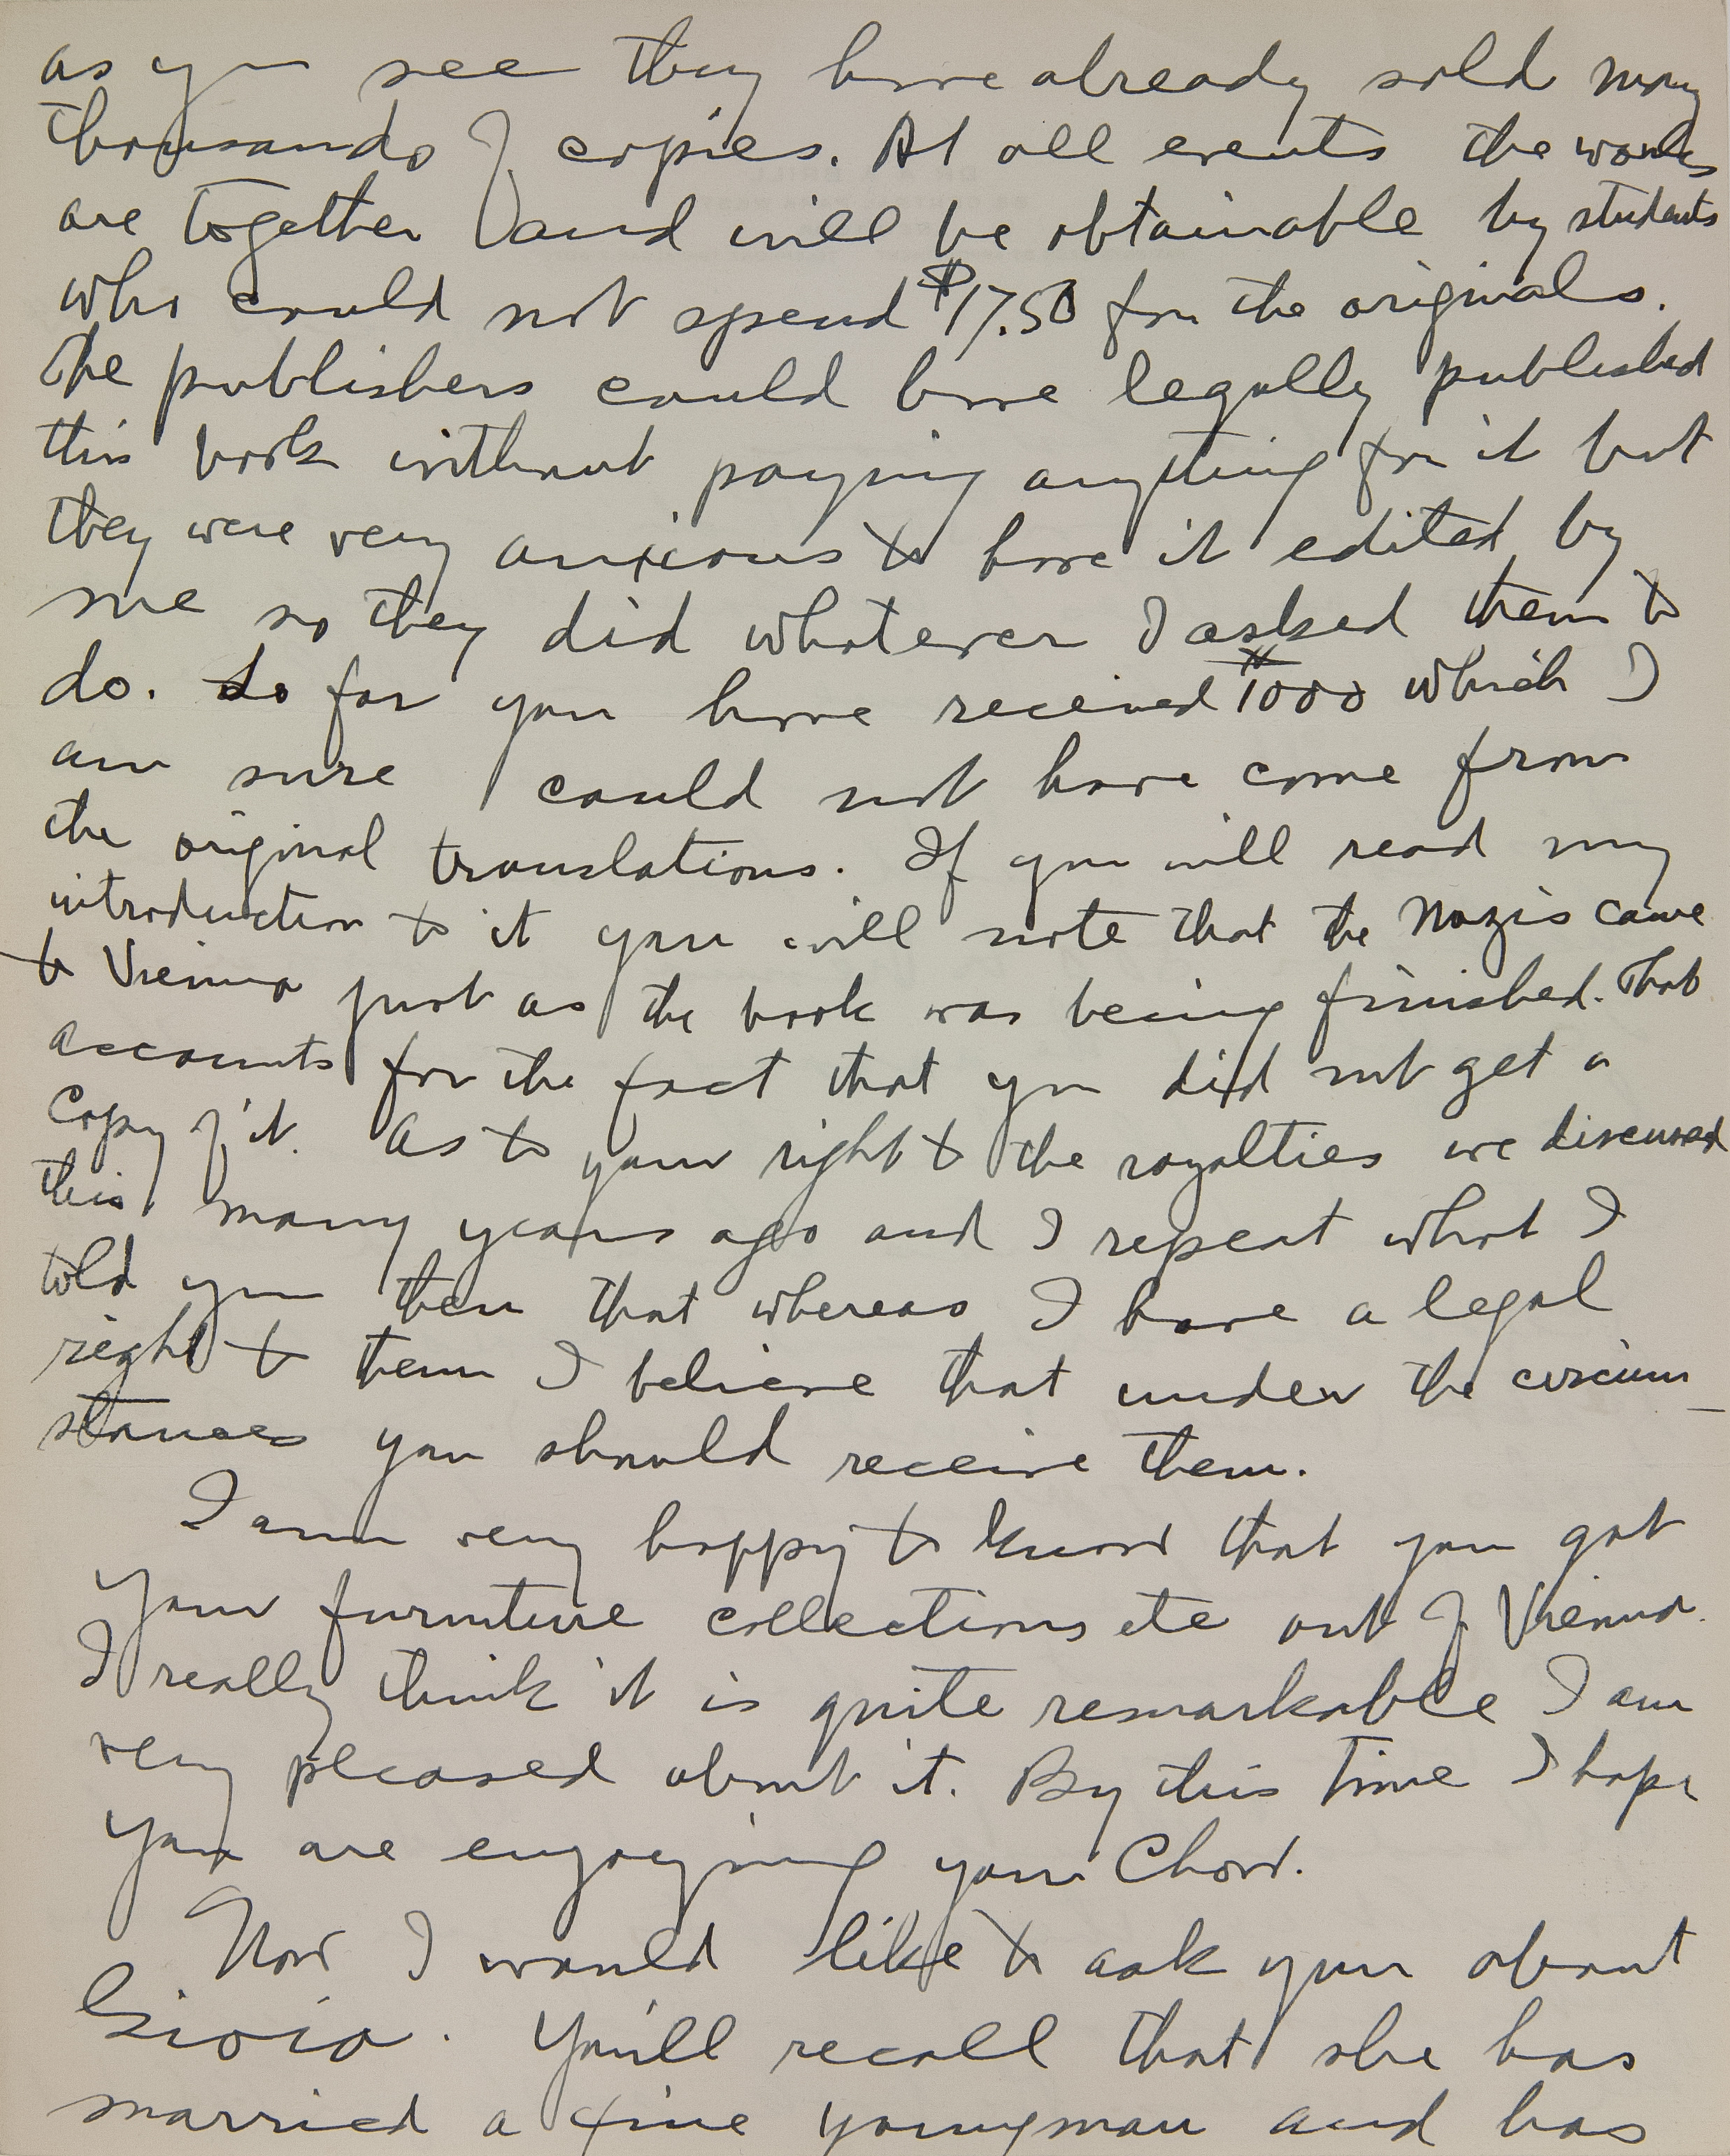 as you see they have already sold many
thousands of copies. At all events the works
are together and will be obtainable by students
who could not spend $17.50 for the originals.
The publishers could have legally published
this book without paying anything for it but
they were very anxious to have it edited by
me so they did whatever I asked them to
do. So far you have received $1000 which I
am sure could not have come from
the original translations. If you will read my
introduction to it you will note that the Nazis came
to Vienna just as the book was being finished. That
accounts for the fact that you did not get a
copy of it. As to your right to the royalties we discussed
this many years ago and I repeat what I
told you then that whereas I have a legal
right to them I believe that under the circum-
stances you should receive them.
I am very happy to know that you got
your furniture collections etc out of Vienna.
I really think it is quite remarkable I am
very pleased about it. By this time I hope
you are enjoying your Chow.
Now I would like to ask you about
Gioia. You'll recall that she has
married a fine youngman and has